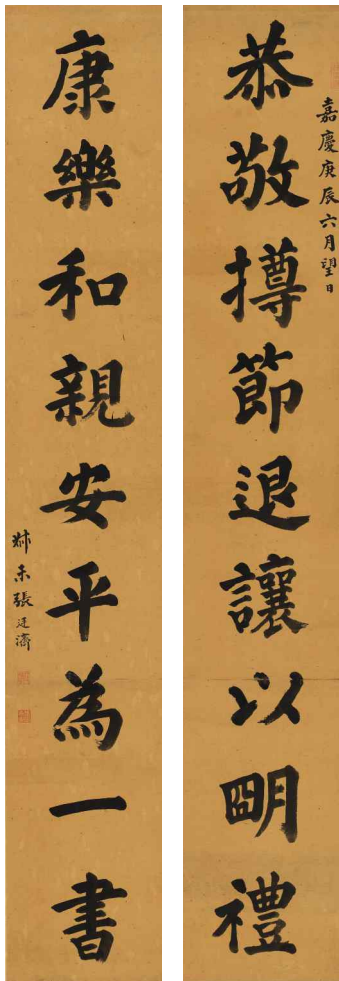 嘉慶庚辰六月望日
恭敬撙節退讓以朙禮
康樂和親安平為一書
尗未張廷濟